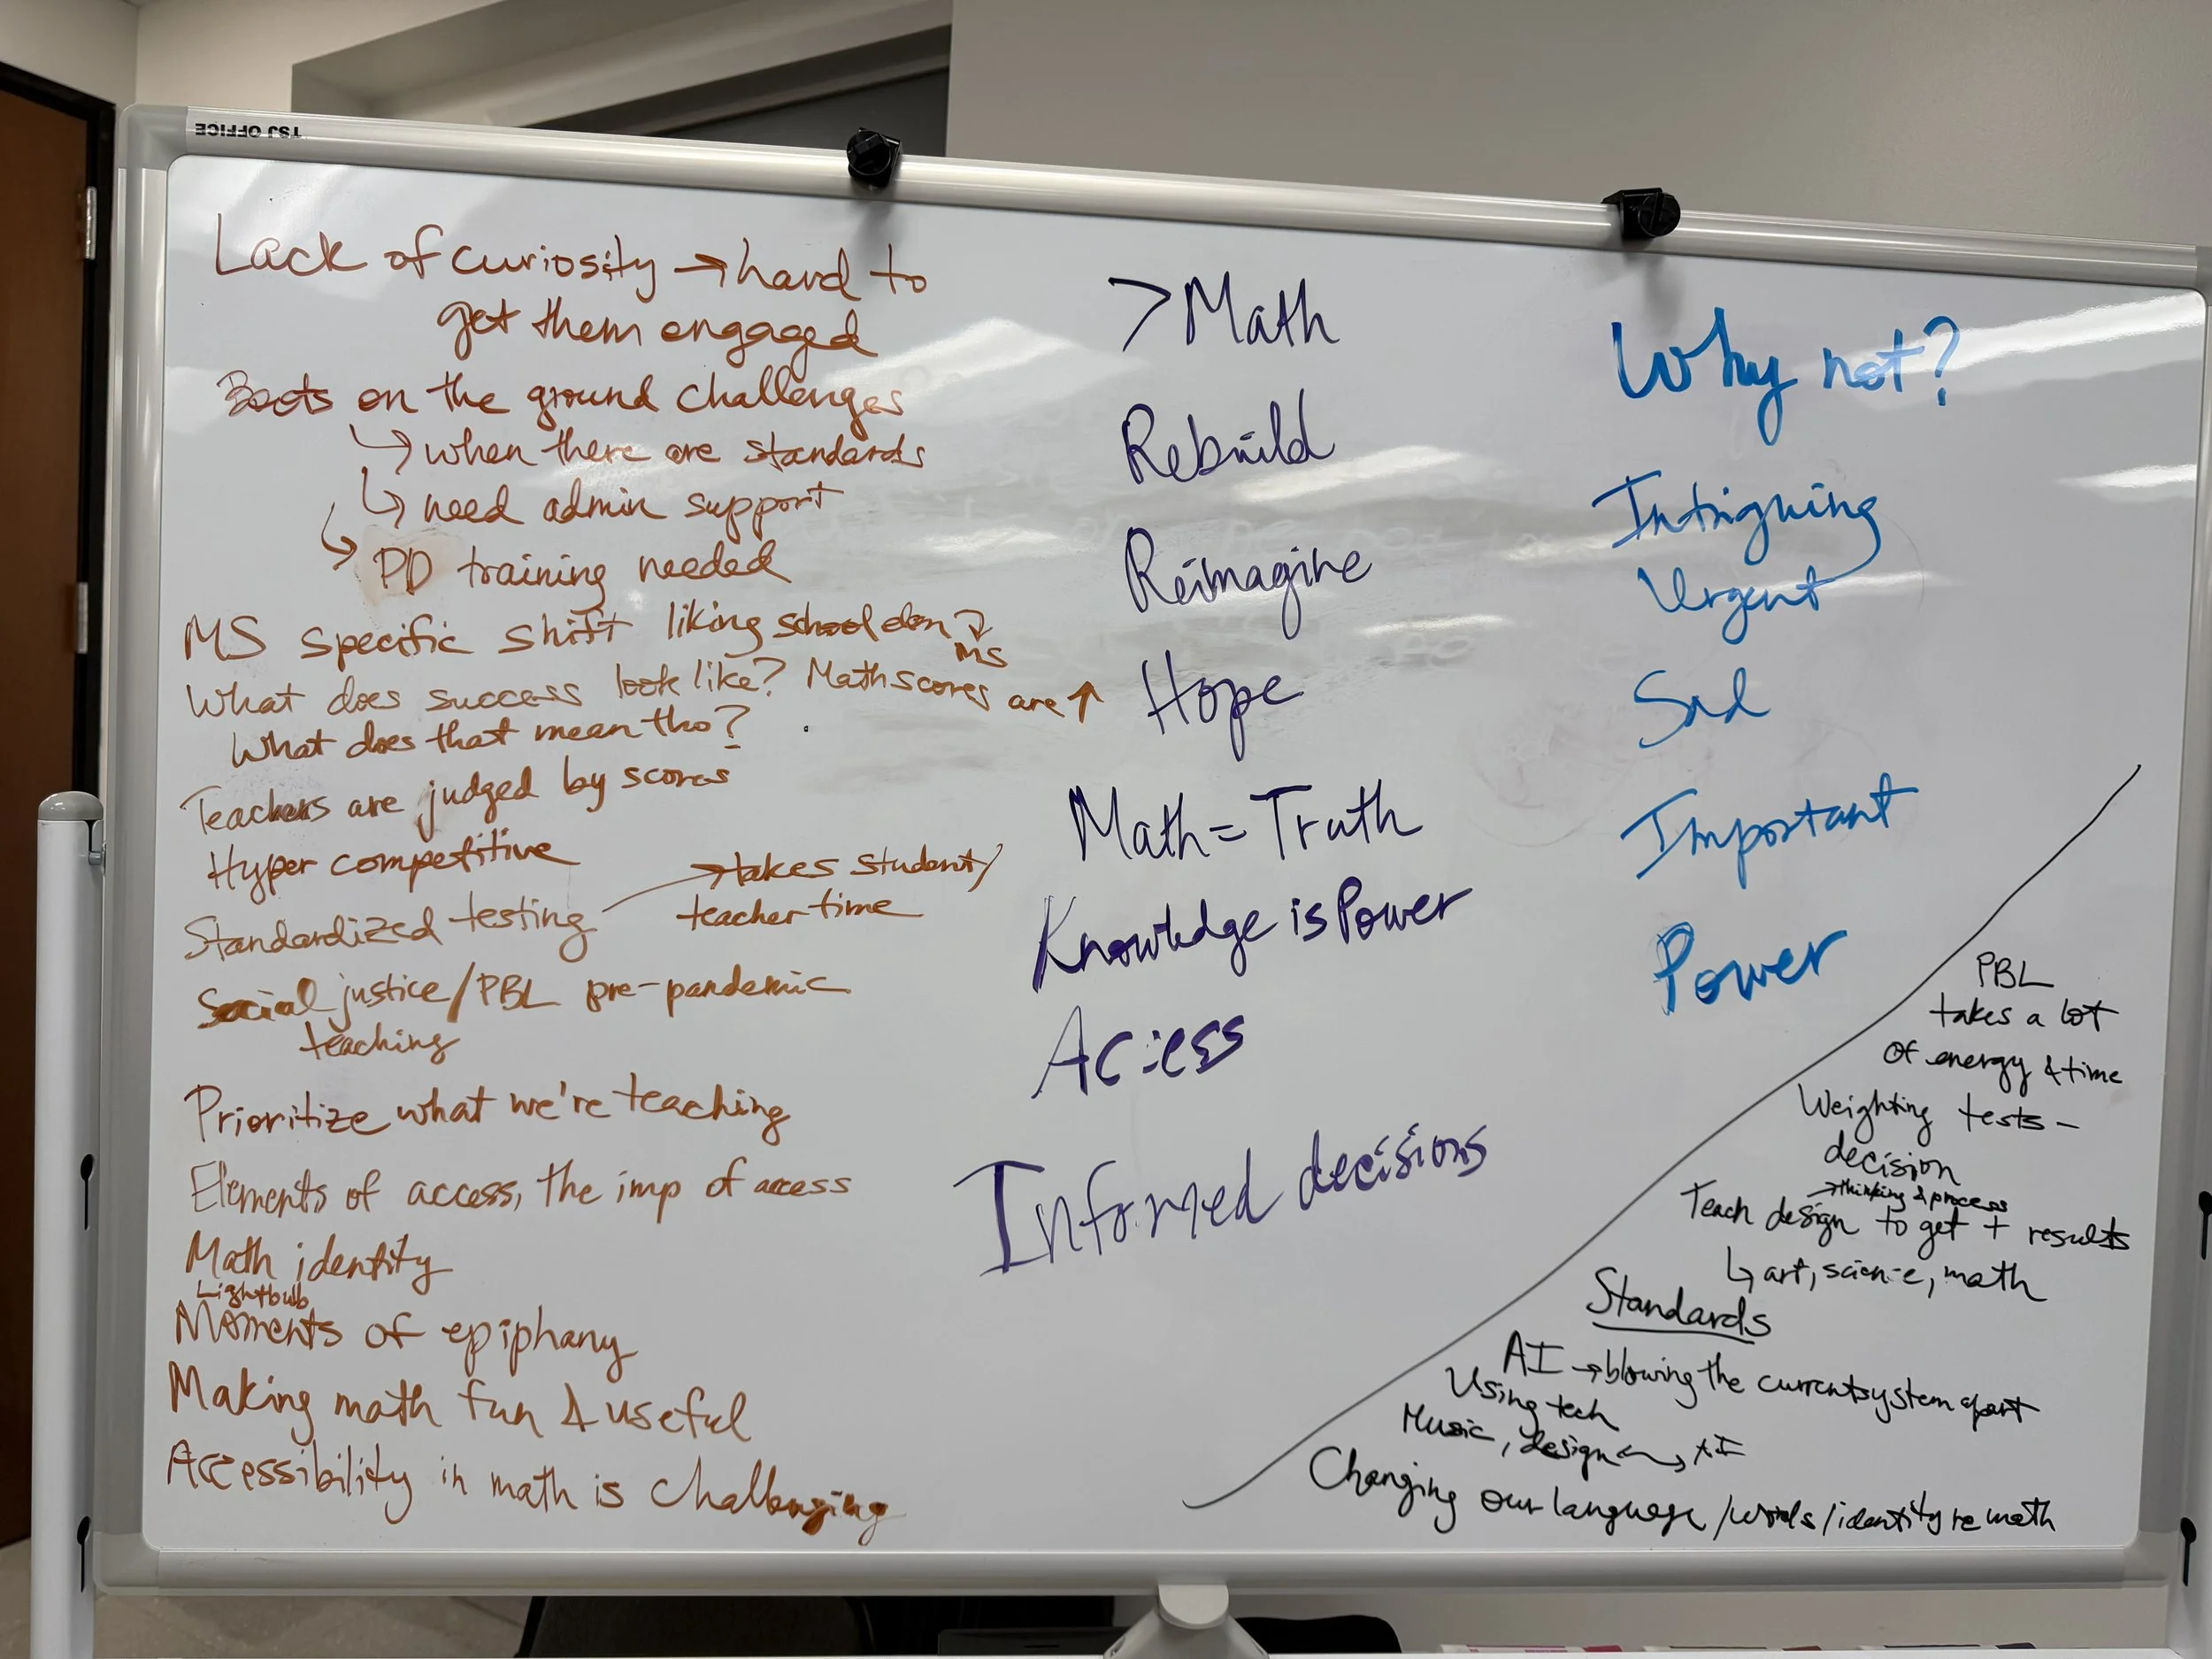 TSJ OFFICE
Lack of curiosity → hard to
get them engaged
Boots on the ground challenges
↳ when there are standards
↳ need admin support
↳ PD training needed
MS specific shift liking school elem ↴
MS
What does success look like? Math scores are ↑
What does that mean tho?
Teachers are judged by scores
Hyper competitive
Standardized testing → takes student/
teacher time
Social justice/PBL pre-pandemic
teaching
Prioritize what we're teaching
Elements of access, the imp of access
Math identity
Lightbulb
Moments of epiphany
Making math fun & useful
Accessibility in math is challenging
>Math
Rebuild
Reimagine
Hope
Math = Truth
Knowledge is Power
Access
Informed decisions
Why not?
Intriguing
Urgent
Sad
Important
Power
PBL
takes a lot
of energy & time
Weighting tests -
decision
→ thinking & process
Teach design to get + results
↳ art, science, math
Standards
AI → blowing the current system apart
Using tech
Music, design ↔ AI
Changing our language/words/identity re math